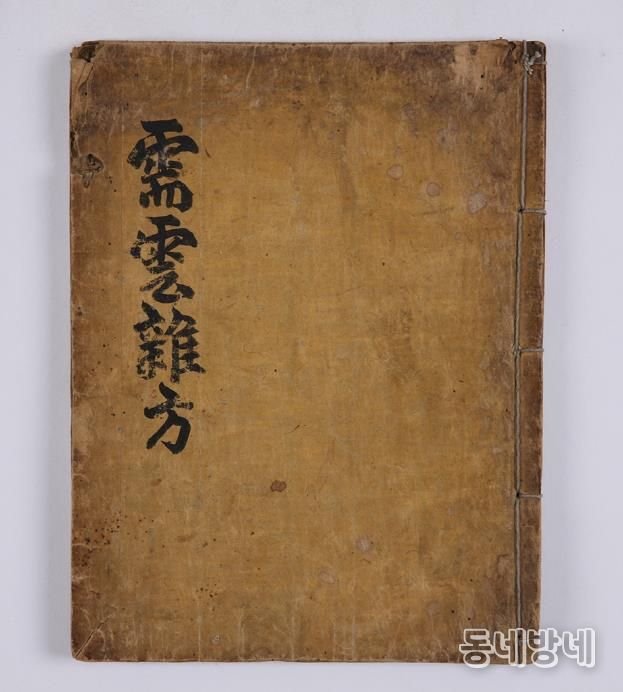 需雲雜方
동네방네